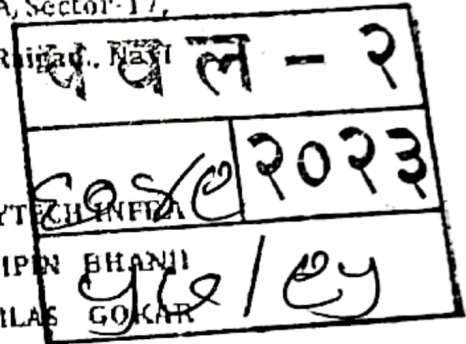 A, Sector-17,
Raigad., Navi
पवल - २
२०२३
YTECH INFRA
IPIN BHANJI
/
ILAS GOKAR